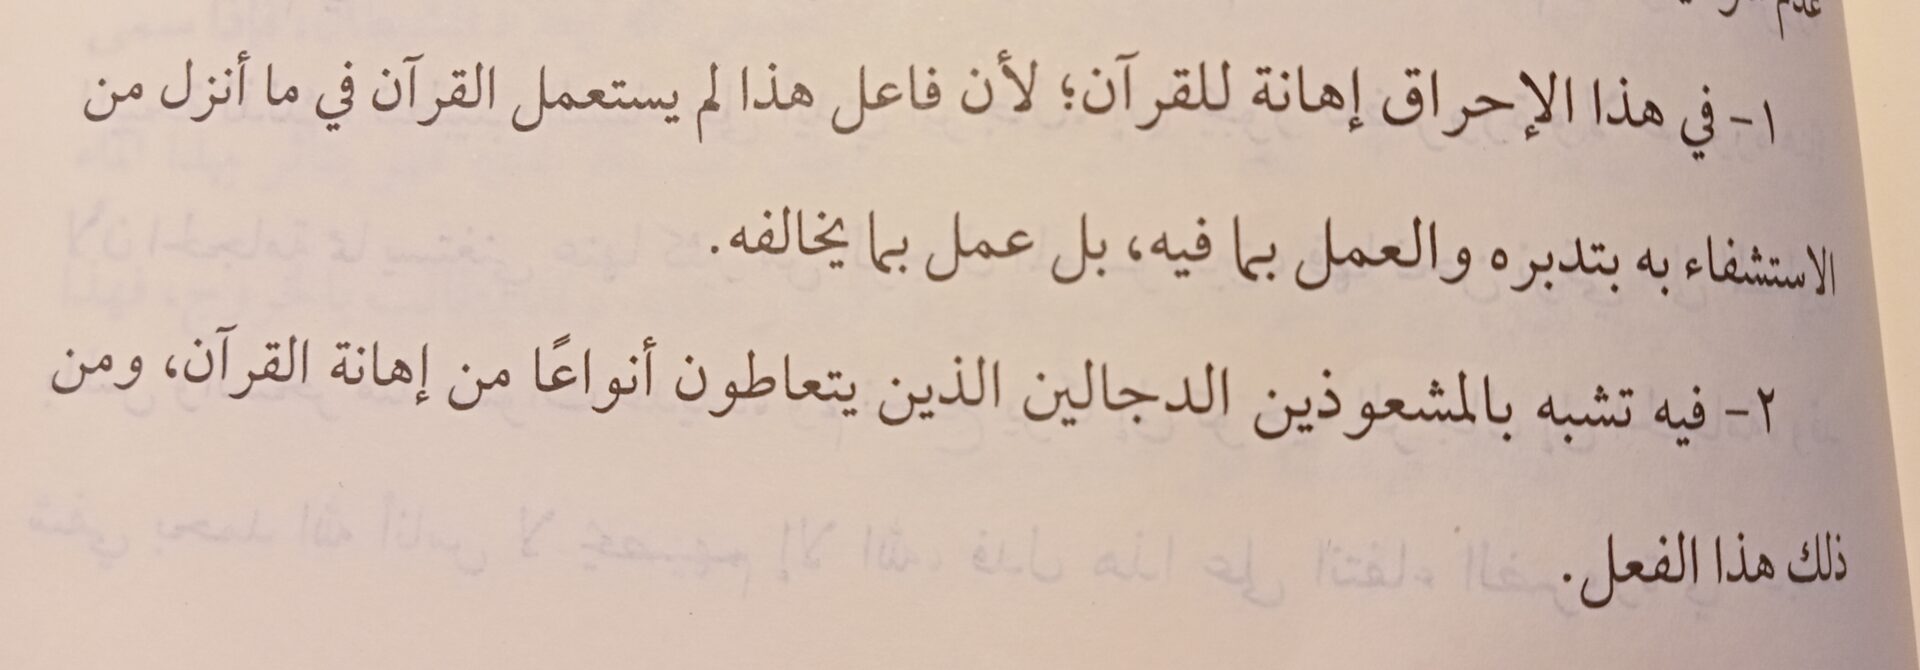 ١- في هذا الإحراق إهانة للقرآن؛ لأن فاعل هذا لم يستعمل القرآن في ما أنزل من
الاستشفاء به بتدبره والعمل بما فيه، بل عمل بما يخالفه.
٢- فيه تشبه بالمشعوذين الدجالين الذين يتعاطون أنواعًا من إهانة القرآن، ومن
ذلك هذا الفعل.